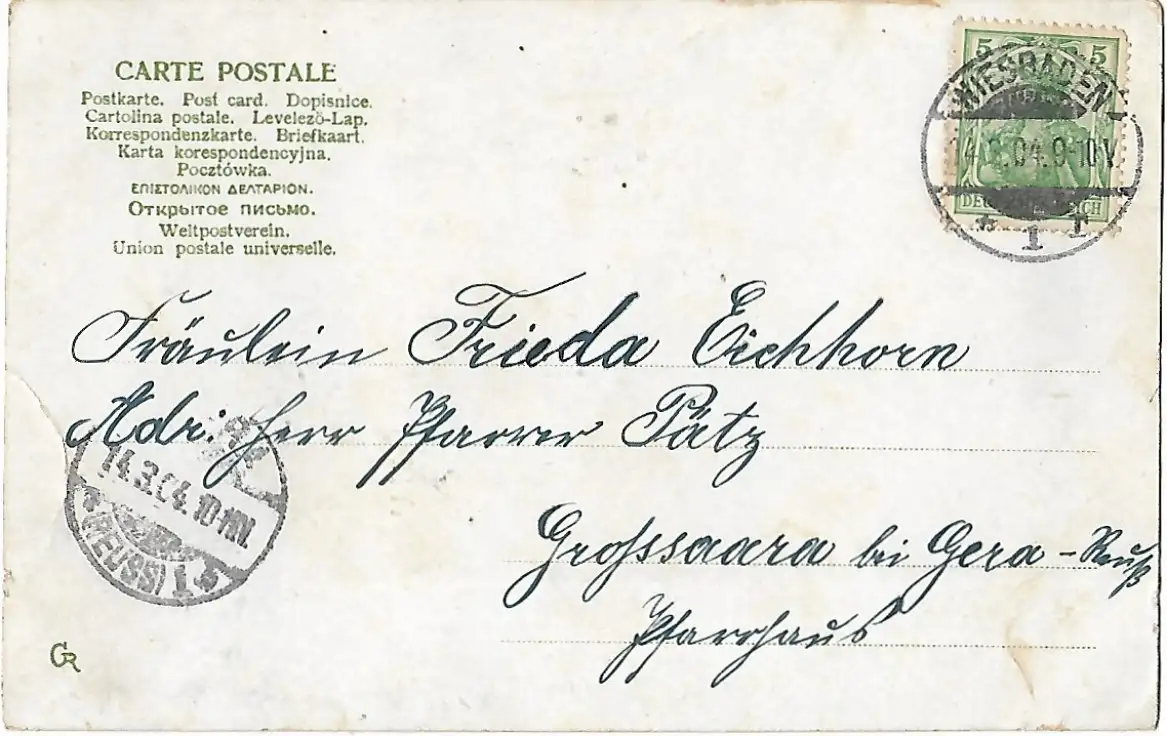 CARTE POSTALE
Postkarte. Post card. Dopisnice.
Cartolina postale. Levelezö-Lap.
Korrespondenzkarte. Briefkaart.
Karta korespondencyjna.
Pocztówka.
ΕΠΙΣΤΟΛΙΚΟΝ ΔΕΛΤΑΡΙΟΝ.
Открытое письмо.
Weltpostverein.
Union postale universelle.
5 5
WIESBADEN
14.3.04.9-10V.
* 1 r
Fräulein Frieda Eichhorn
Adr: Herr Pfarrer Pätz
14.3.04.10-11N.
* (REUSS) 1 *
Grossaara bei Gera - Reuß
Pfarrhaus
GR